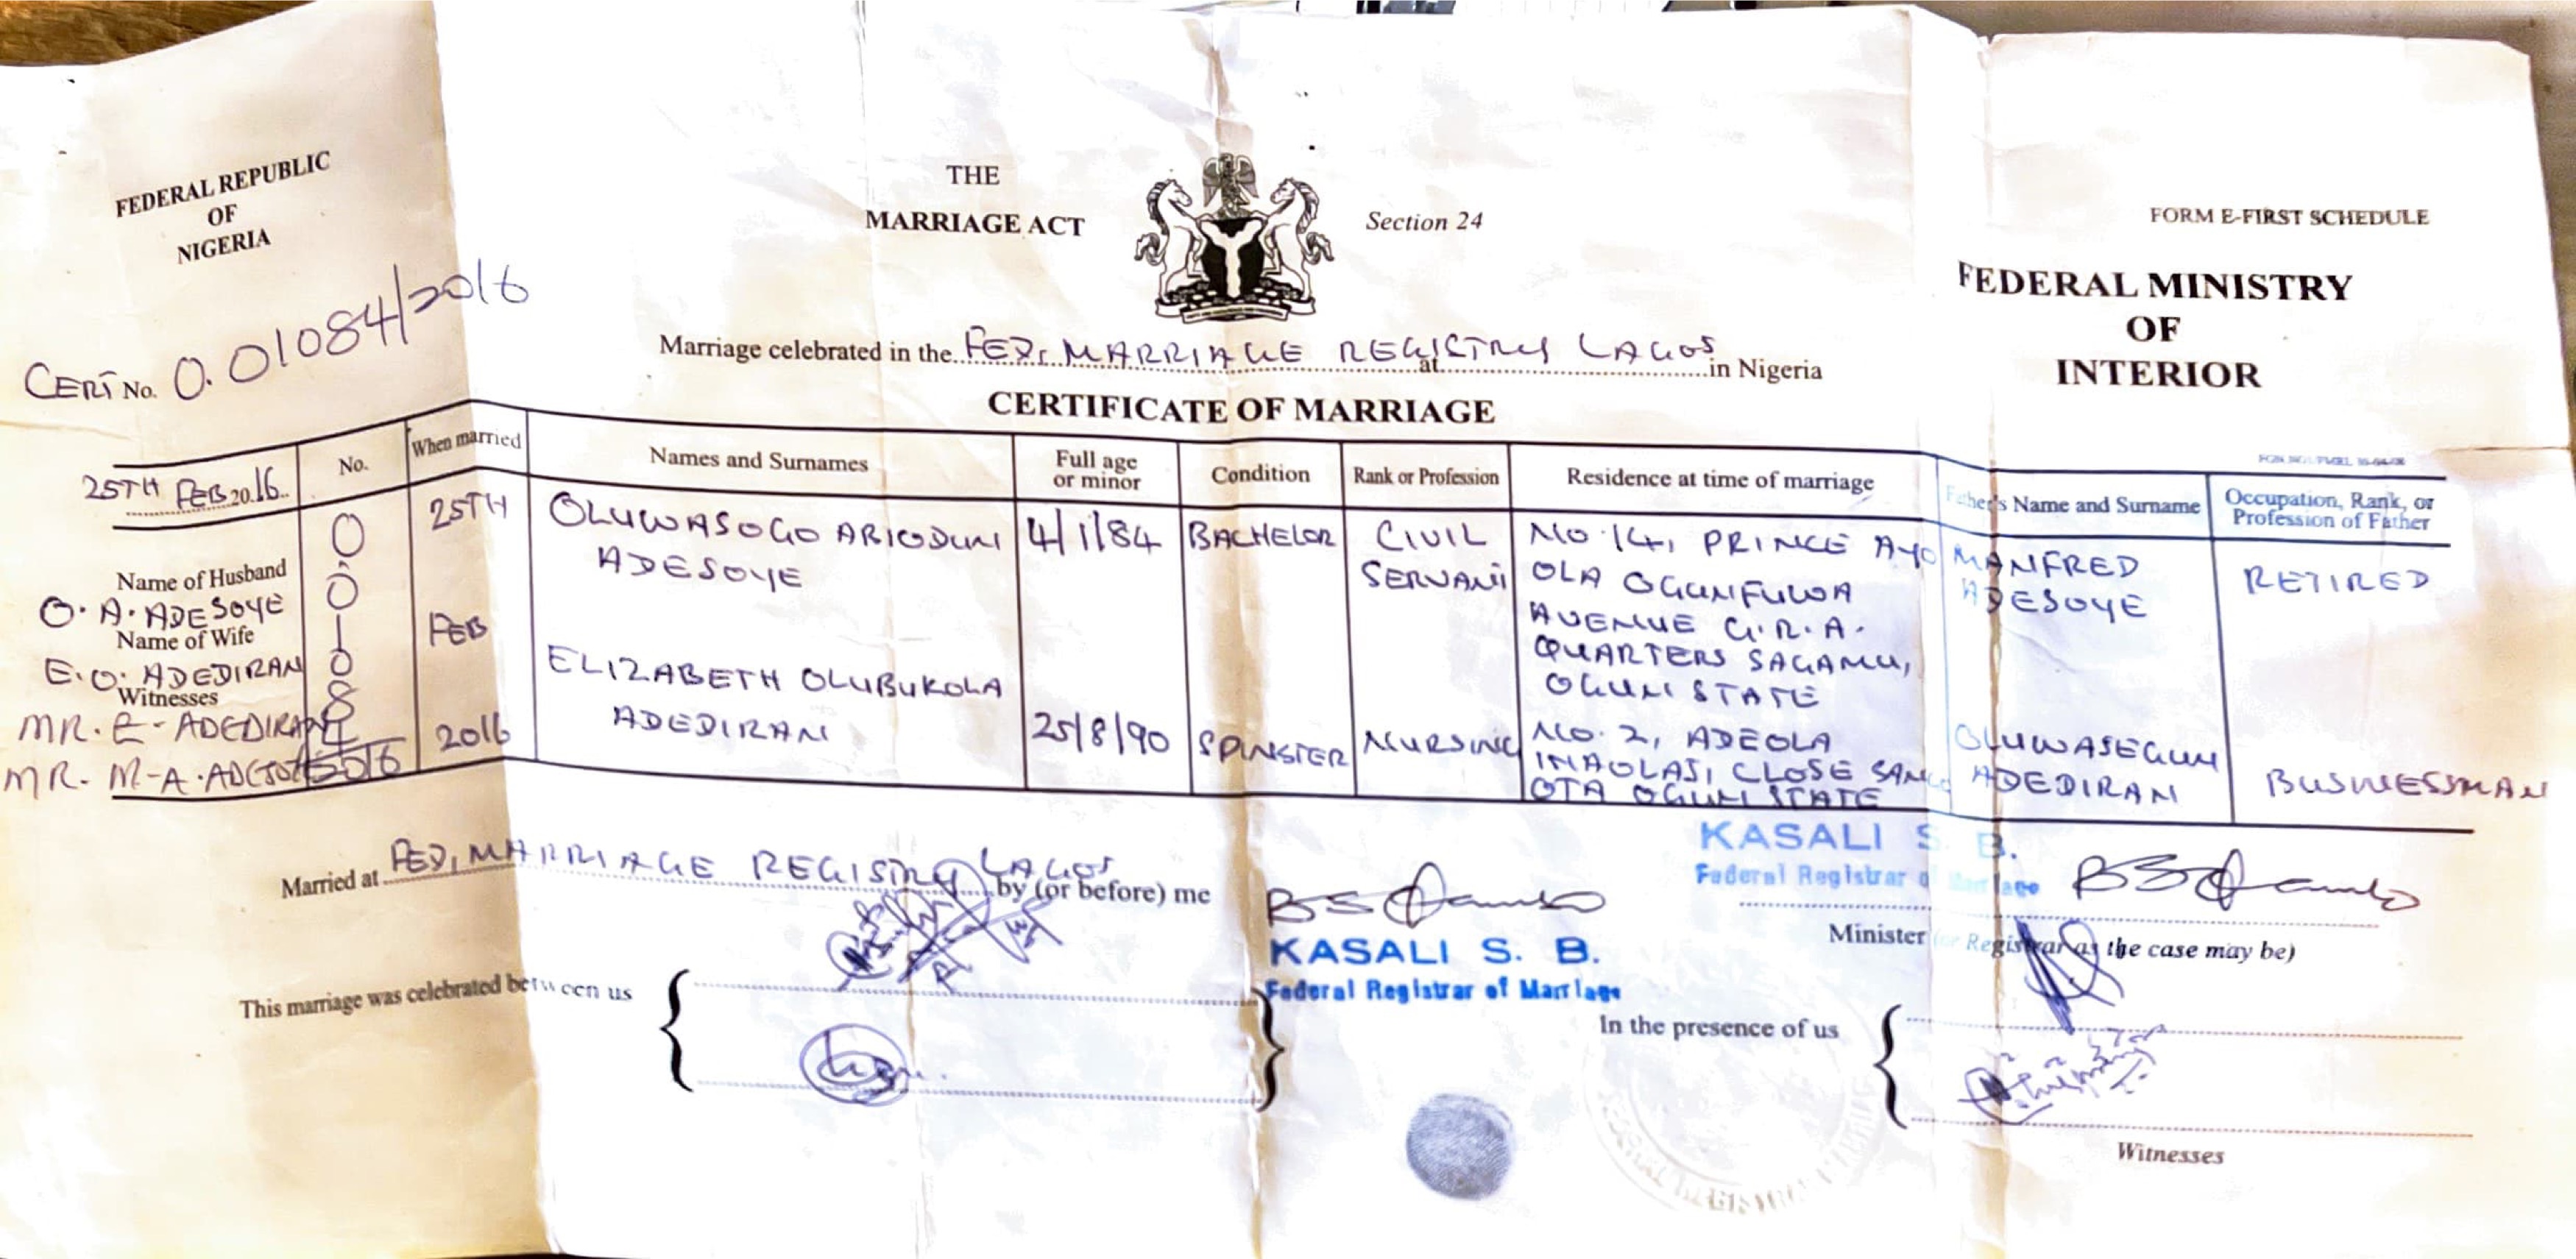 FEDERAL REPUBLIC
OF
NIGERIA
THE
MARRIAGE ACT
Section 24
FORM E-FIRST SCHEDULE
FEDERAL MINISTRY
OF
INTERIOR
CERT No. 0.01084/2016
Marriage celebrated in the FED. MARRIAGE REGISTRY LAGOS at in Nigeria
CERTIFICATE OF MARRIAGE
25TH FEB 2016
No.
When married
Names and Surnames
Full age
or minor
Condition
Rank or Profession
Residence at time of marriage
Father's Name and Surname
Occupation, Rank, or
Profession of Father
Name of Husband
O. A. ADESOYE
Name of Wife
E. O. ADEDIRAN
Witnesses
MR. E - ADEDIRAN
MR. M-A.
0
0
1
0
8
4
2016
25TH
FEB
2016
OLUWASOGO ABIODUN
ADESOYE
4/1/84
BACHELOR
CIVIL
SERVANT
NO 14, PRINCE AYO
OLA OGUNFUWA
AVENUE G.R.A.
QUARTERS SAGAMU,
OGUN STATE
MANFRED
ADESOYE
RETIRED
ELIZABETH OLUBUKOLA
ADEDIRAN
25/8/90
SPINSTER
NURSING
NO. 2, ADEOLA
CLOSE
OTA OGUN STATE
OLUWASEGUN
ADEDIRAN
BUSINESSMAN
Married at FED. MARRIAGE REGISTRY LAGOS by (or before) me
KASALI S. B.
Federal Registrar of Marriage
KASALI S. B.
Federal Registrar of Marriage
Minister (or Registrar as the case may be)
This marriage was celebrated between us
In the presence of us
Witnesses